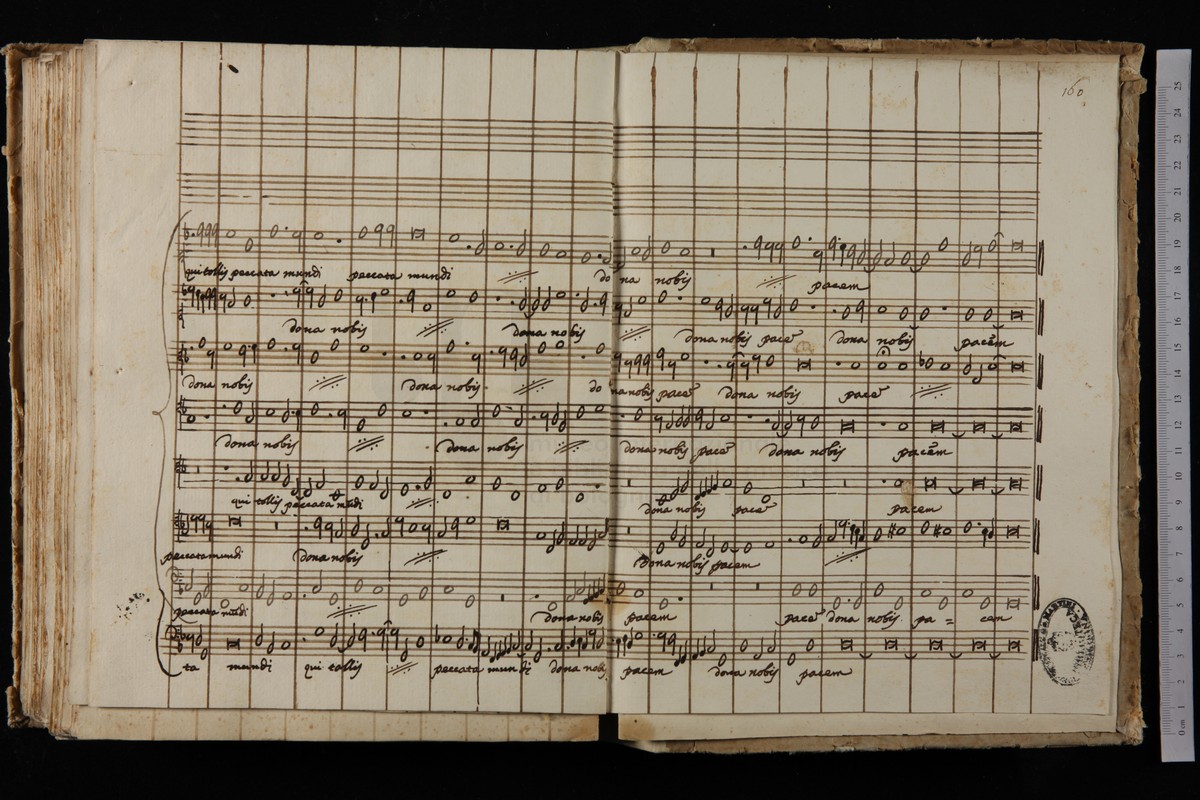 160
qui tollis peccata mundi peccata mundi do na nobis pacem
dona nobis dona nobis dona nobis pacē dona nobis pacem
dona nobis dona nobis do na nobis pacē dona nobis pacē
dona nobis dona nobis dona nobis pacē dona nobis pacem
qui tollis peccata mūdi dona nobis pacē pacem
peccata mundi dona nobis dona nobis pacem
peccata mūdi dona nobis pacem pacē dona nobis pa = cem
ta mundi qui tollis peccata mundi dona nobis pacem dona nobis pacem